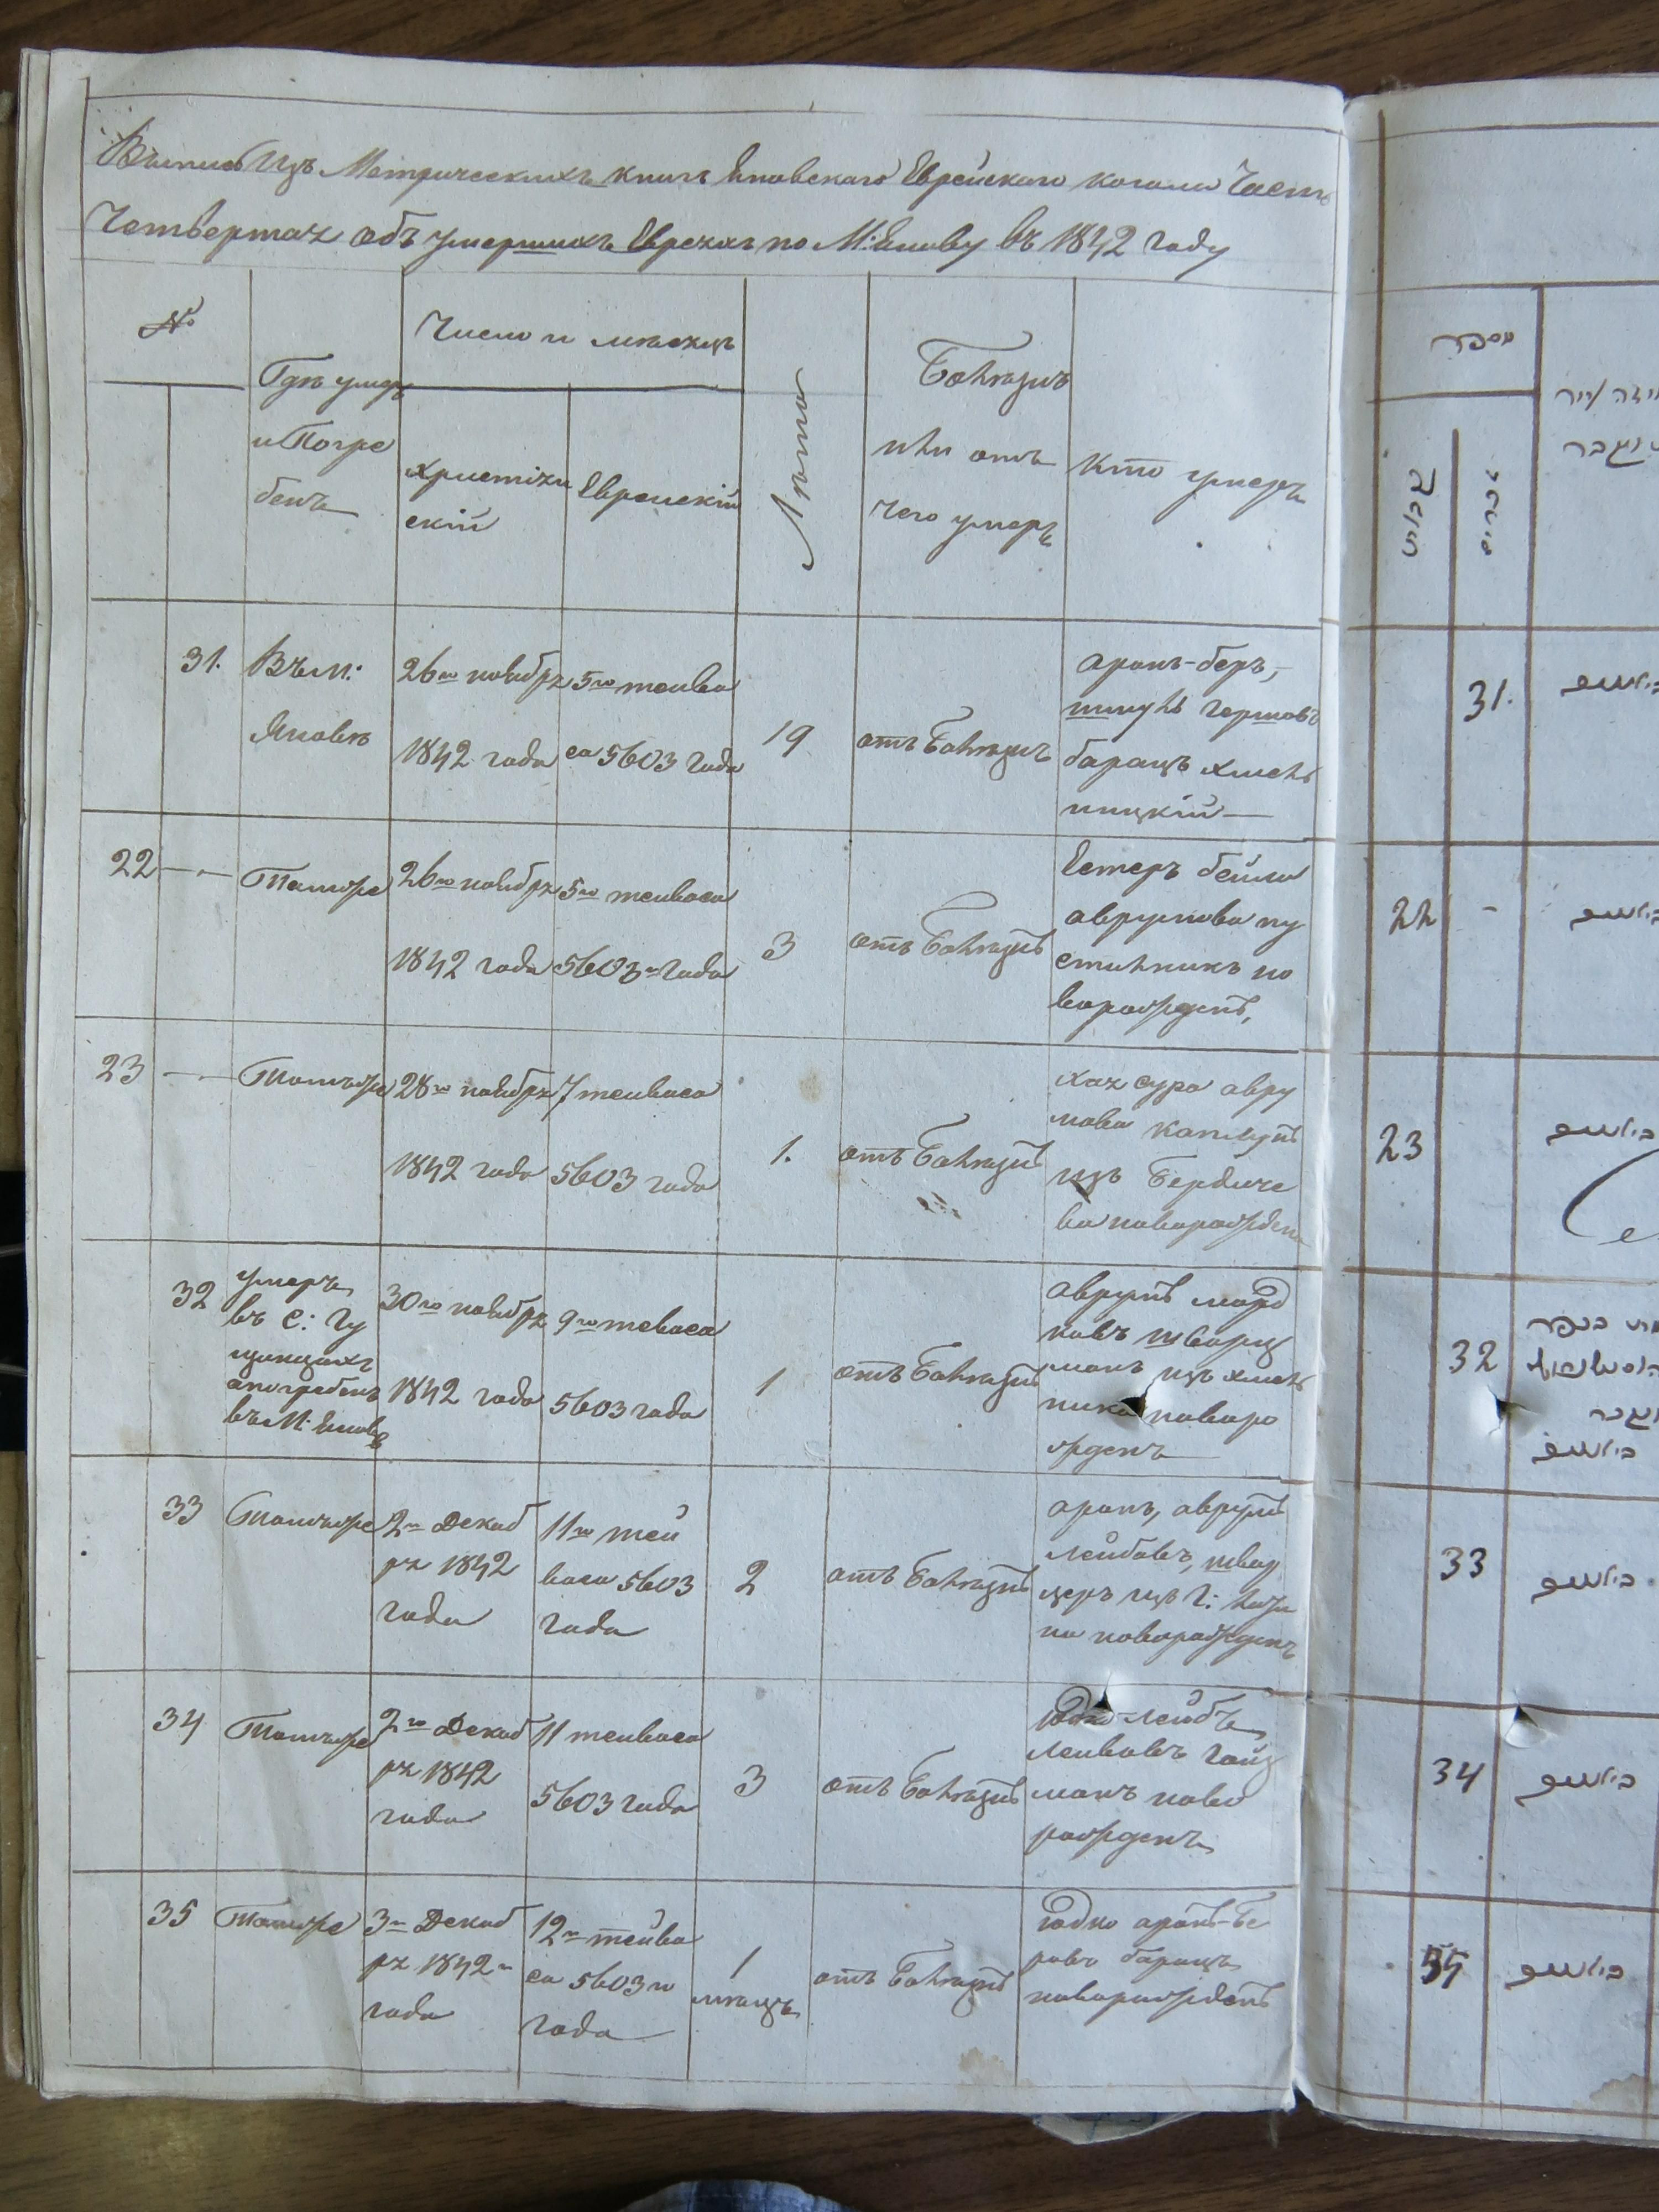 Выпись Изъ Метрическихъ книгъ Яновскаго Еврейскаго Кагала Часть
Четвертая объ умершихъ Евреяхъ по М: Янову въ 1842 году
№
Где умеръ
и Погре
бенъ
Число и месяцъ
христіян
скій
Еврейскій
Лета
Болезнь
или отъ
чего умеръ
кто умеръ
31.
Въ м:
Янове
26го ноября
1842 года
5го тейва
са 5603 года
19
отъ болезни
аронъ-беръ,
шмуль гершовъ
барацъ хмель
ницкій
22
Тамже
26го ноября
1842 года
5го тейваса
5603 года
3
отъ болезни
Естеръ бейла
аврумова пу
стильникъ но
ворожденъ,
23
Тамъже
28го ноября
1842 года
7 тейваса
5603 года
1.
отъ болезни
хая сура авру
мова
изъ Бердиче
ва новорожден
32
умеръ
въ с:
а погребенъ
въ М: Янове
30го ноября
1842 года
9го теваса
5603 года
1
отъ болезни
аврумъ морд
ковъ шварц
манъ изъ хмель
ника новоро
жденъ
33
Тамъже
2го Декаб
ря 1842
года
11го тей
васа 5603
года
2
отъ болезни
аронъ, аврумъ
лейбовъ, швар
церъ изъ г:
на новорожденъ
34
Тамъже
2го Декаб
ря 1842
года
11 тейваса
5603 года
3
отъ болезни
лейбъ
манъ ново
рожденъ
35
Тамже
3го Декаб
ря 1842
года
12го тейва
са 5603го
года
1
месяцъ
отъ болезни
аронъ-бе
ровъ барацъ
новорожденъ
מספר
31.
22 -
23
32
33
34
35